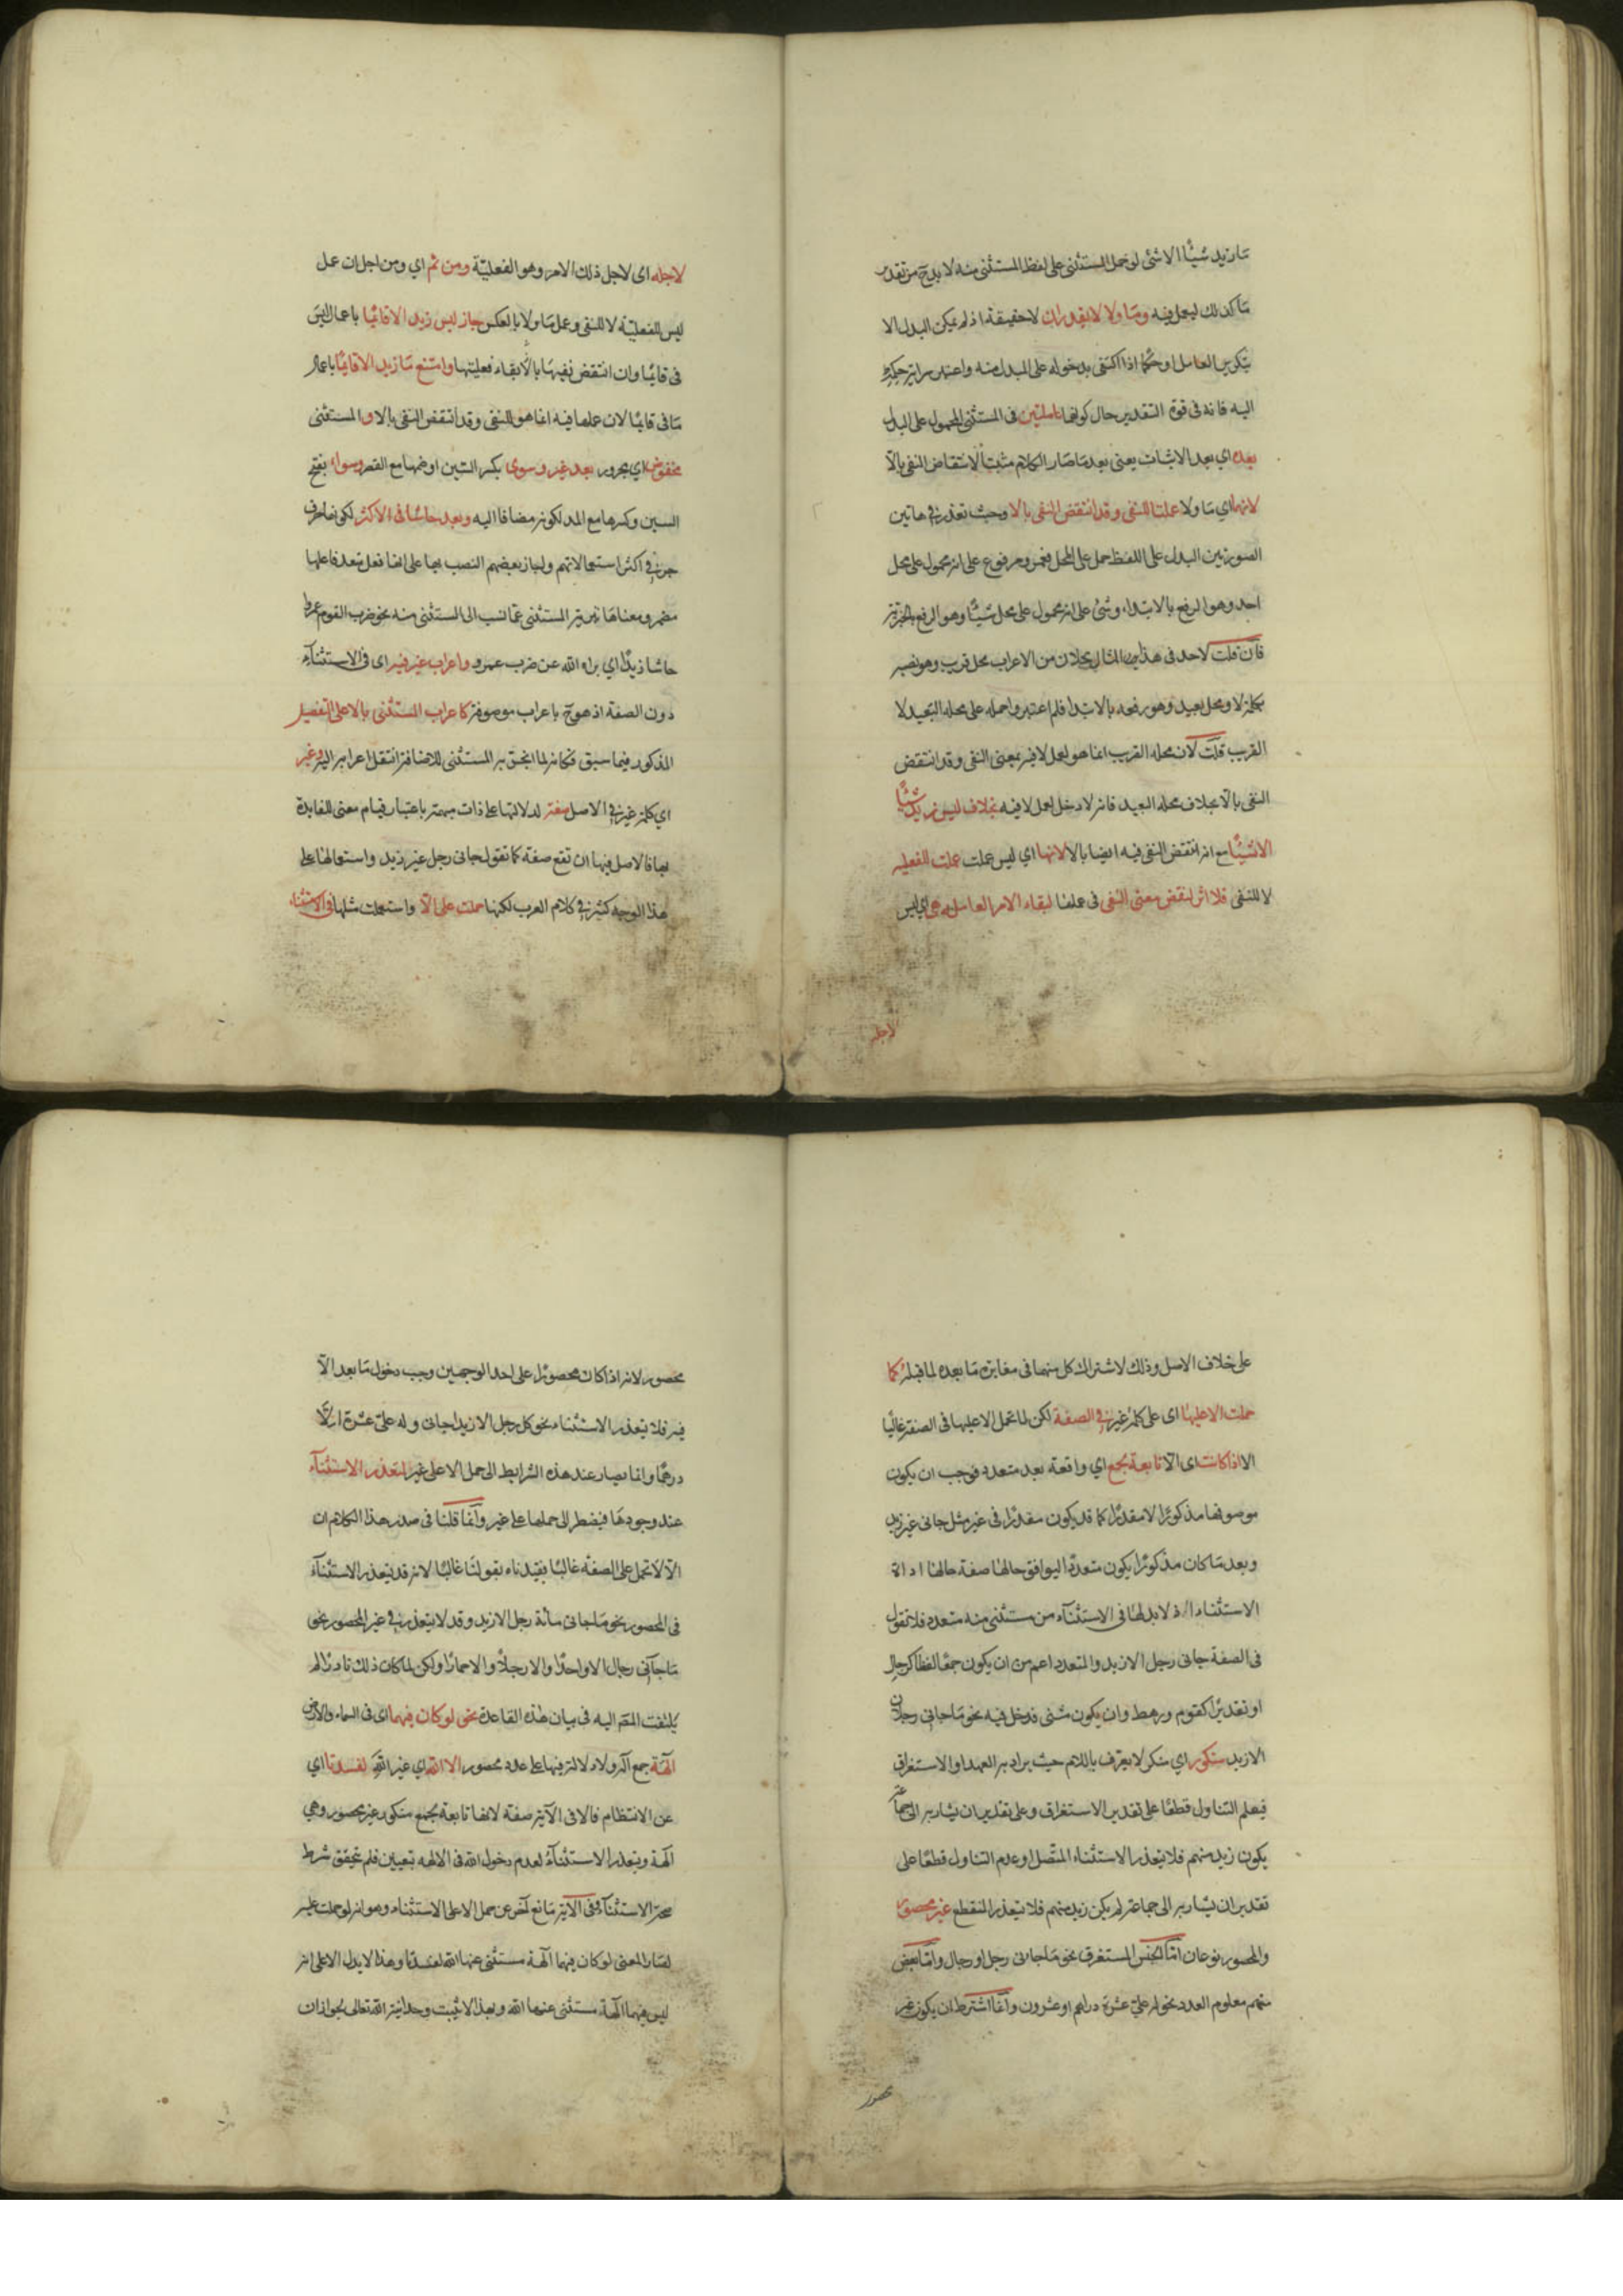 مازيد شيئا الا شئ لو حمل المستثنى على لفظ المستثنى منه لا بد ح من تقدير
ما كذلك ليعمل فيه وما ولا لا يقدران لا حقيقة اذ لم يكن البدل الا
بتكرير العامل او حكما اذا اكتفى بدخوله على المبدل منه واعتبر سراية حكمه
اليه فانه فى قوة التقدير حال كونهما عاملتين فى المستثنى المحمول على البدل
بعده اي بعد الاثبات يعنى بعد ما صار الكلام مثبتا لانتقاض النفى بالا
لانهما اي ما ولا عملتا للنفى وقد انتقض النفى بالا وحيث تعذر في هاتين
الصورتين البدل على اللفظ حمل على المحل فعمرو مرفوع على انه محمول على محل
احد وهو الرفع بالابتداء وشئ على انه محمول على محل شيئا وهو الرفع بالخبرية
فان قلت لاحد فى هذا المثال محلان من الاعراب محل قريب وهو نصبه
بكلمة لا ومحل بعيد وهو رفعه بالابتداء فلم اعتبروا حمله على محله البعيد لا
القريب قلت لان محله القريب انما هو لعمل لا فيه بمعنى النفى وقد انتقض
النفى بالا بخلاف محله البعيد فانه لا دخل لعمل لا فيه بخلاف ليس زيد شيئا
الا شيئا مع انه انتقض النفى فيه ايضا بالا لانها اي ليس عملت عملت للفعليه
لا للنفى فلا اثر لنقض معنى النفى فى عملها لبقاء الامر العاملة هى اي ليس
لاجله
لاجله اى لاجل ذلك الامر وهو الفعلية ومن ثم اي ومن اجل ان عمل
ليس للفعلية لا للنفى وعمل ما ولا بالعكس جاز ليس زيد الا قائما باعمال ليس
فى قائما وان انتقض نفيها بالا لبقاء فعليتها وامتنع ما زيد الا قائما باعمال
ما فى قائما لان عملها فيه انما هو للنفى وقد انتقض النفى بالا و المستثنى
مخفوض اي مجرور بعد غير وسوى بكسر السين او ضمها مع القصر وسواء بفتح
السين وكسرها مع المد لكونه مضافا اليه وبعد حاشا فى الاكثر لكونها حرف
جر في اكثر استعمالاتهم واجاز بعضهم النصب بها على انها فعل متعد فاعلها
مضمر ومعناها تبرية المستثنى عما نسب الى المستثنى منه نحو ضرب القوم عمرا
حاشا زيدا اي براه الله عن ضرب عمرو واعراب غير فيه اى فى الاستثناء
دون الصفة اذ هو ح باعراب موصوفه كاعراب المستثنى بالا على التفصيل
المذكور فيما سبق فكانه لما انجر به المستثنى للاضافة انتقل اعرابه اليه وغير
اي كلمة غير في الاصل صفة لدلالتها على ذات مبهمة باعتبار قيام معنى المغايرة
بها فالاصل فيها ان تقع صفة كما تقول جاءنى رجل غير زيد واستعمالها على
هذا الوجه كثير في كلام العرب لكنها حملت على الا واستعملت مثلها فى الاستثناء
على خلاف الاصل وذلك لاشتراك كل منهما فى مغايرة ما بعده لما قبله كما
حملت الا عليها اى على كلمة غير في الصفة لكن لا تحمل الا عليها فى الصفة غالبا
الا اذا كانت اى الا تابعة لجمع اي واقعة بعد متعدد فوجب ان يكون
موصوفها مذكورا لا مقدرا كما قد يكون مقدرا فى غير مثل جاءنى غير زيد
وبعد ما كان مذكورا يكون متعددا ليوافق حالها صفة حالها اداة
الاستثناء اذ لا بد لها فى الاستثناء من مستثنى منه متعدد فلا تقول
فى الصفة جاءنى رجل الا زيد والمتعدد اعم من ان يكون جمعا لفظا كرجال
او تقديرا كقوم ورهط وان يكون مثنى فدخل فيه نحو ما جاءنى رجلان
الا زيد منكور اي منكر لا يعرف باللام حيث يراد به العهد او الاستغراق
فيعلم التناول قطعا على تقدير الاستغراق وعلى تقدير ان يشار به الى جماعة
يكون زيد منهم فلا يتعذر الاستثناء المتصل او عدم التناول قطعا على
تقدير ان يشار به الى جماعة لم يكن زيد منهم فلا يتعذر المنقطع غير محصور
والمحصور نوعان اما الجنس المستغرق نحو ما جاءنى رجل او رجال واما بعض
منهم معلوم العدد نحو له على عشرة دراهم او عشرون وانما اشترط ان يكون غير
محصور
محصور لانه اذا كان محصورا على احد الوجهين وجب دخول ما بعد الا
فيه فلا يتعذر الاستثناء نحو كل رجل الا زيدا جاءنى وله على عشرة الا
درهما وانما يصار عند هذه الشرايط الى حمل الا على غير لتعذر الاستثناء
عند وجودها فيضطر الى حملها على غير وانما قلنا فى صدر هذا الكلام ان
الا لا تحمل على الصفة غالبا بقيدناه بقولنا غالبا لانه قد يتعذر الاستثناء
فى المحصور نحو ما جاءنى مائة رجل الا زيد وقد لا يتعذر في غير المحصور نحو
ما جاءنى رجال الا واحدا والا رجلا والا حمارا ولكن لما كان ذلك نادرا لم
يلتفت المصر اليه فى بيان هذه القاعدة نحو لو كان فيهما اى فى السماء والارض
آلهة جمع اله ولا دلالة فيها على عدد محصور الا الله اي غير الله لفسدتا اي
عن الانتظام فالا فى الآية صفة لانها تابعة لجمع منكور غير محصور وهي
آلهة ويتعذر الاستثناء لعدم دخول الله فى الالهه بتعيين فلم يتحقق شرط
صحة الاستثناء وفى الآية مانع آخر عن حمل الا على الاستثناء وهو انه لو حملت عليه
لصار المعنى لو كان فيهما آلهة مستثنى عنها الله لفسدتا وهذا لا يدل الا على انه
ليس فيهما آلهة مستثنى عنها الله وبهذا لا يثبت وحدانية الله تعالى لجواز ان